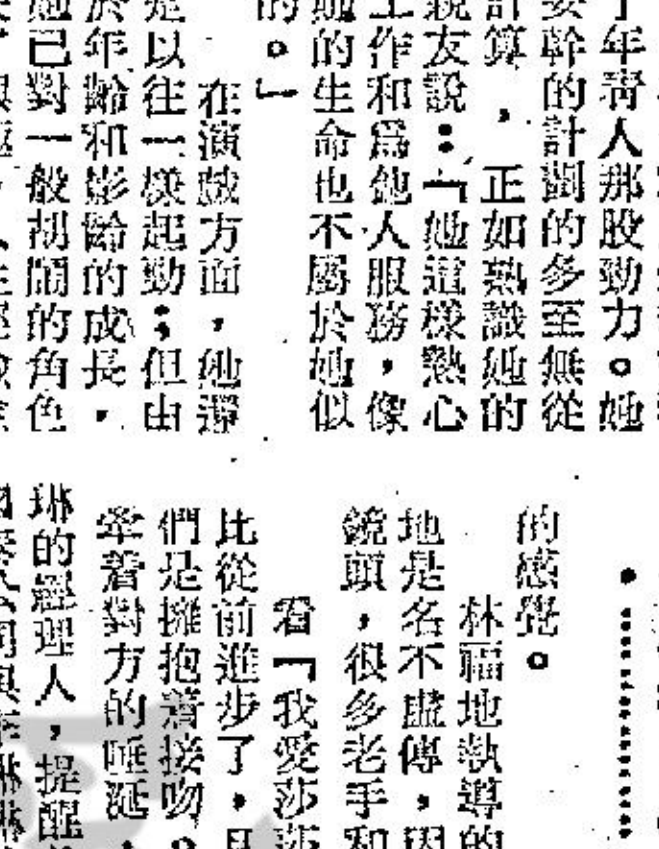 了年青人那股勁力。她
要幹的計劃的多至無從
計算，正如熟識她的
親友說：「她這樣熱心
工作和爲他人服務，像
她的生命也不屬於她似
的。」
在演戲方面，她還
是以往一樣起勁；但由
於年齡和影齡的成長，
她已對一般胡鬧的角色
的感覺。
林福地執導的
地是名不虛傳，因
鏡頭，很多老手和
看「我愛莎莎
比從前進步了，且
們是擁抱着接吻，
牽着對方的唾涎，
琳的經理人，提醒